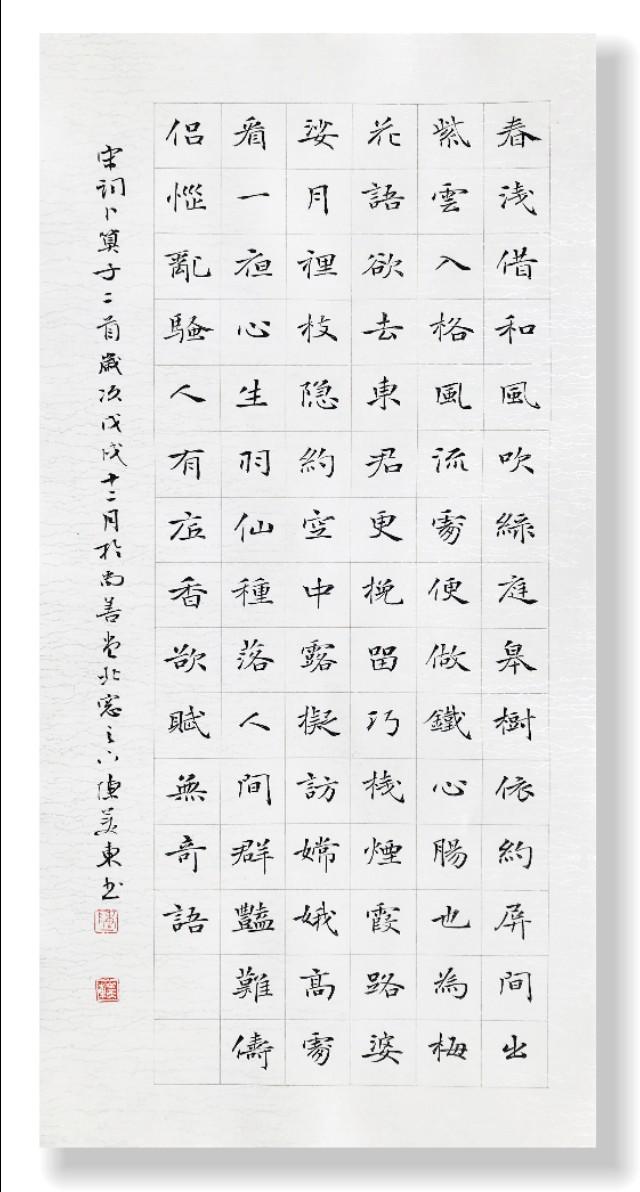 春浅借和風吹綠庭皋樹依約屏間出
紫雲入格風流處便做鐵心腸也為梅
花語欲去東君更挽留巧栈煙霞路婆
娑月裡枝隐約空中露擬訪嫦娥高處
看一夜心生羽仙種落人間群豔難儔
侣惱亂騷人有底香欲賦無奇語
宋詞卜算子二首歲次戊戌十二月於尚善堂北窓之下陳美東书